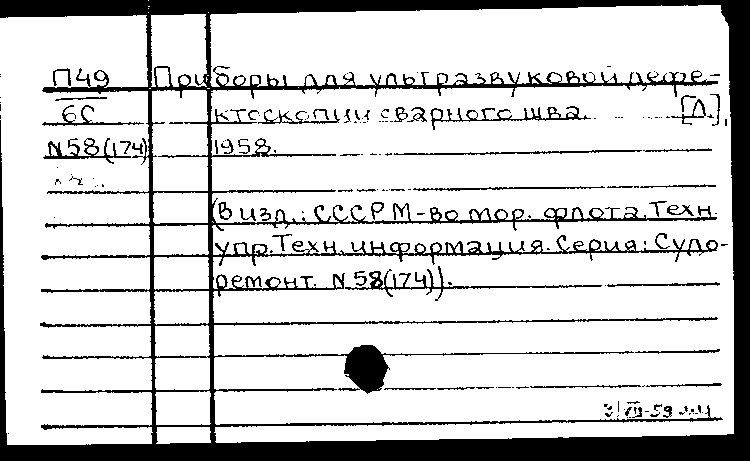 П49 Приборы для ультразвуковой дефе-
6С ктоскопии сварного шва. [Л.],
N58(174) 1958.
(В изд.: СССР М-во мор. флота. Техн.
упр. Техн. информация. Серия: Судо-
ремонт. N 58(174)).
3/VII-59